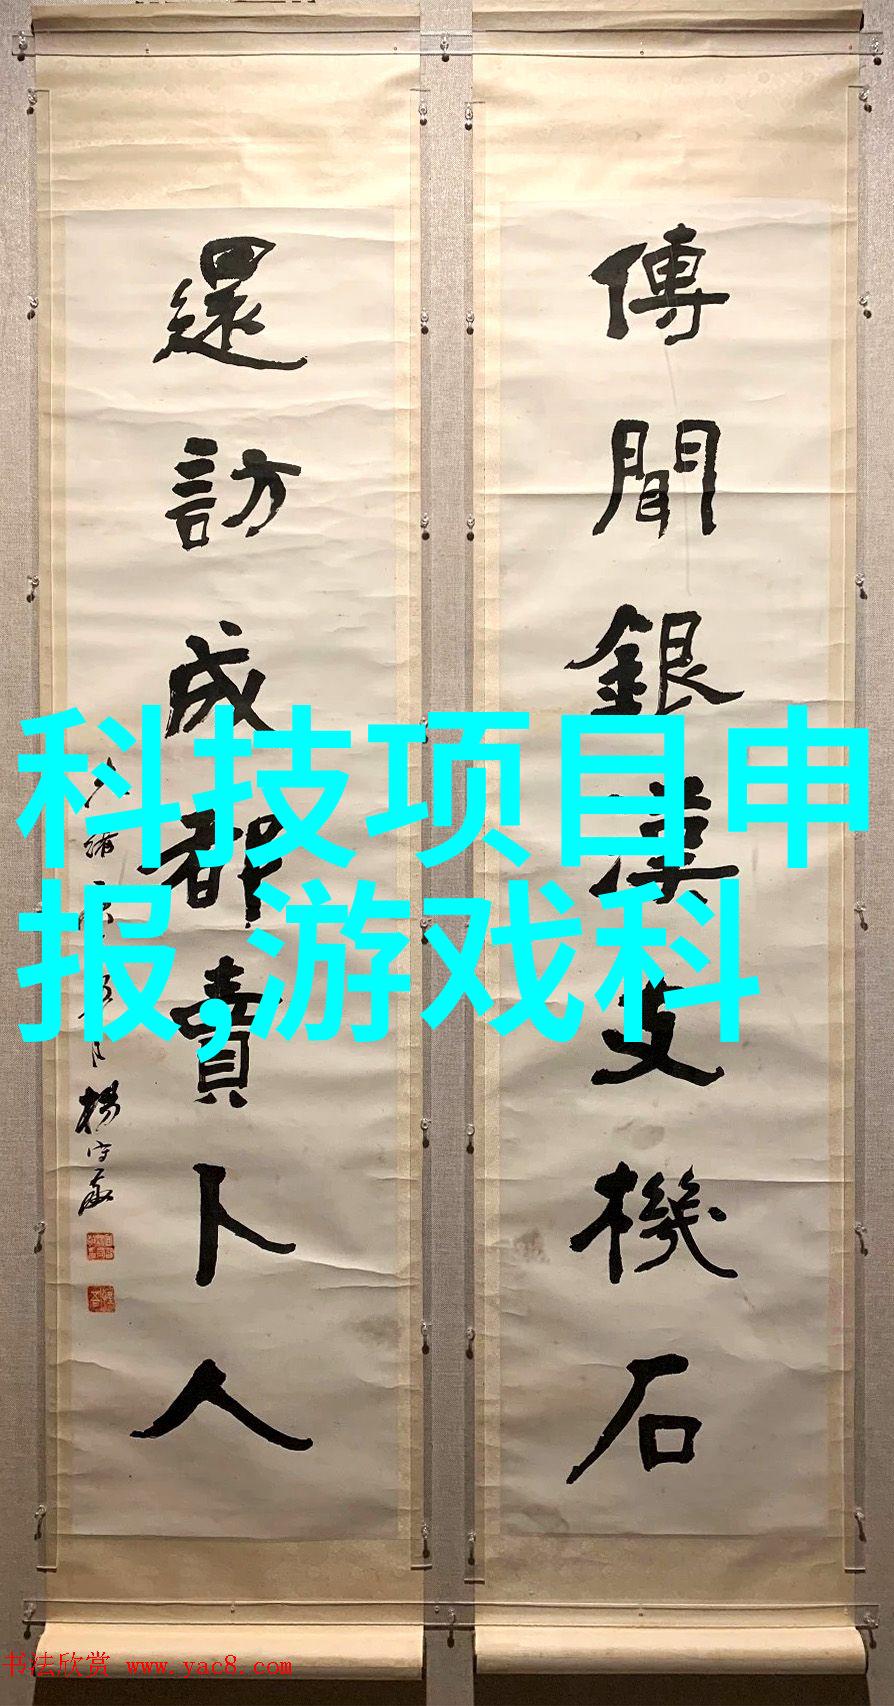 傳聞銀漢支機石
還訪成都賣卜人
楊守敬
科技项目申
报,游戏科
书法欣赏 www.yac8.com